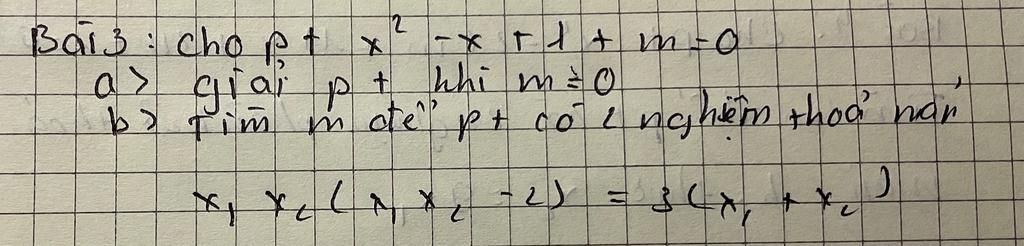 Bài 3 : cho pt x² - x + 1 + m = 0
a> giải pt khi m = 0
b> Tìm m để pt có 2 nghiệm thoả mãn
x₁ x₂ ( x₁ x₂ - 2 ) = 3 ( x₁ + x₂ )